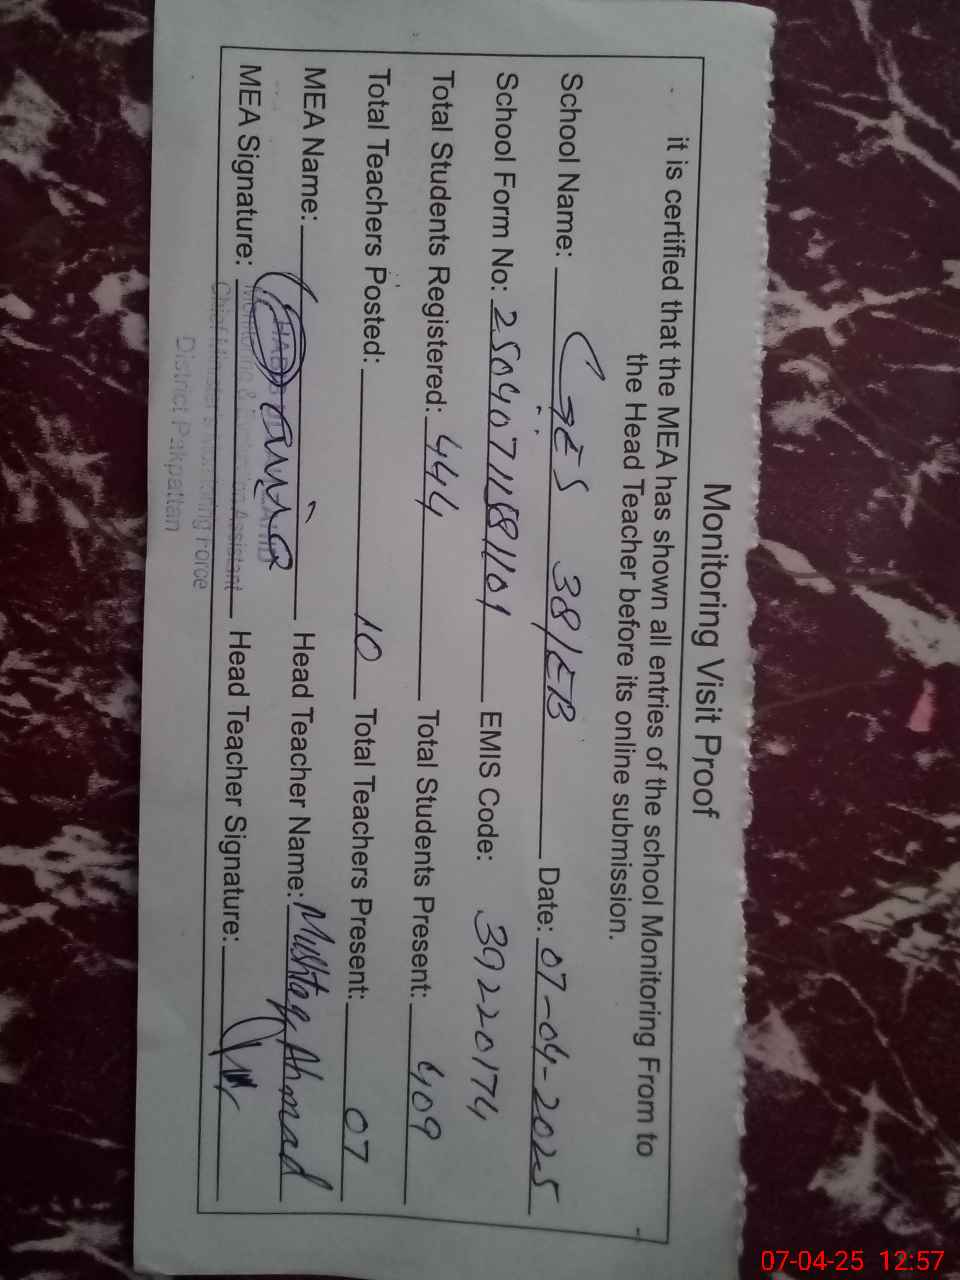 Monitoring Visit Proof
it is certified that the MEA has shown all entries of the school Monitoring From to
the Head Teacher before its online submission.
School Name: GES 38/EB Date: 07-04-2025
School Form No: EMIS Code: 39220174
Total Students Registered: 444 Total Students Present: 409
Total Teachers Posted: 10 Total Teachers Present: 07
MEA Name: Head Teacher Name: Mushtaq Ahmad
MEA Signature: Head Teacher Signature:
Monitoring & Evaluation Assistant
Chief Minister's Monitoring Force
District Pakpattan
07-04-25 12:57